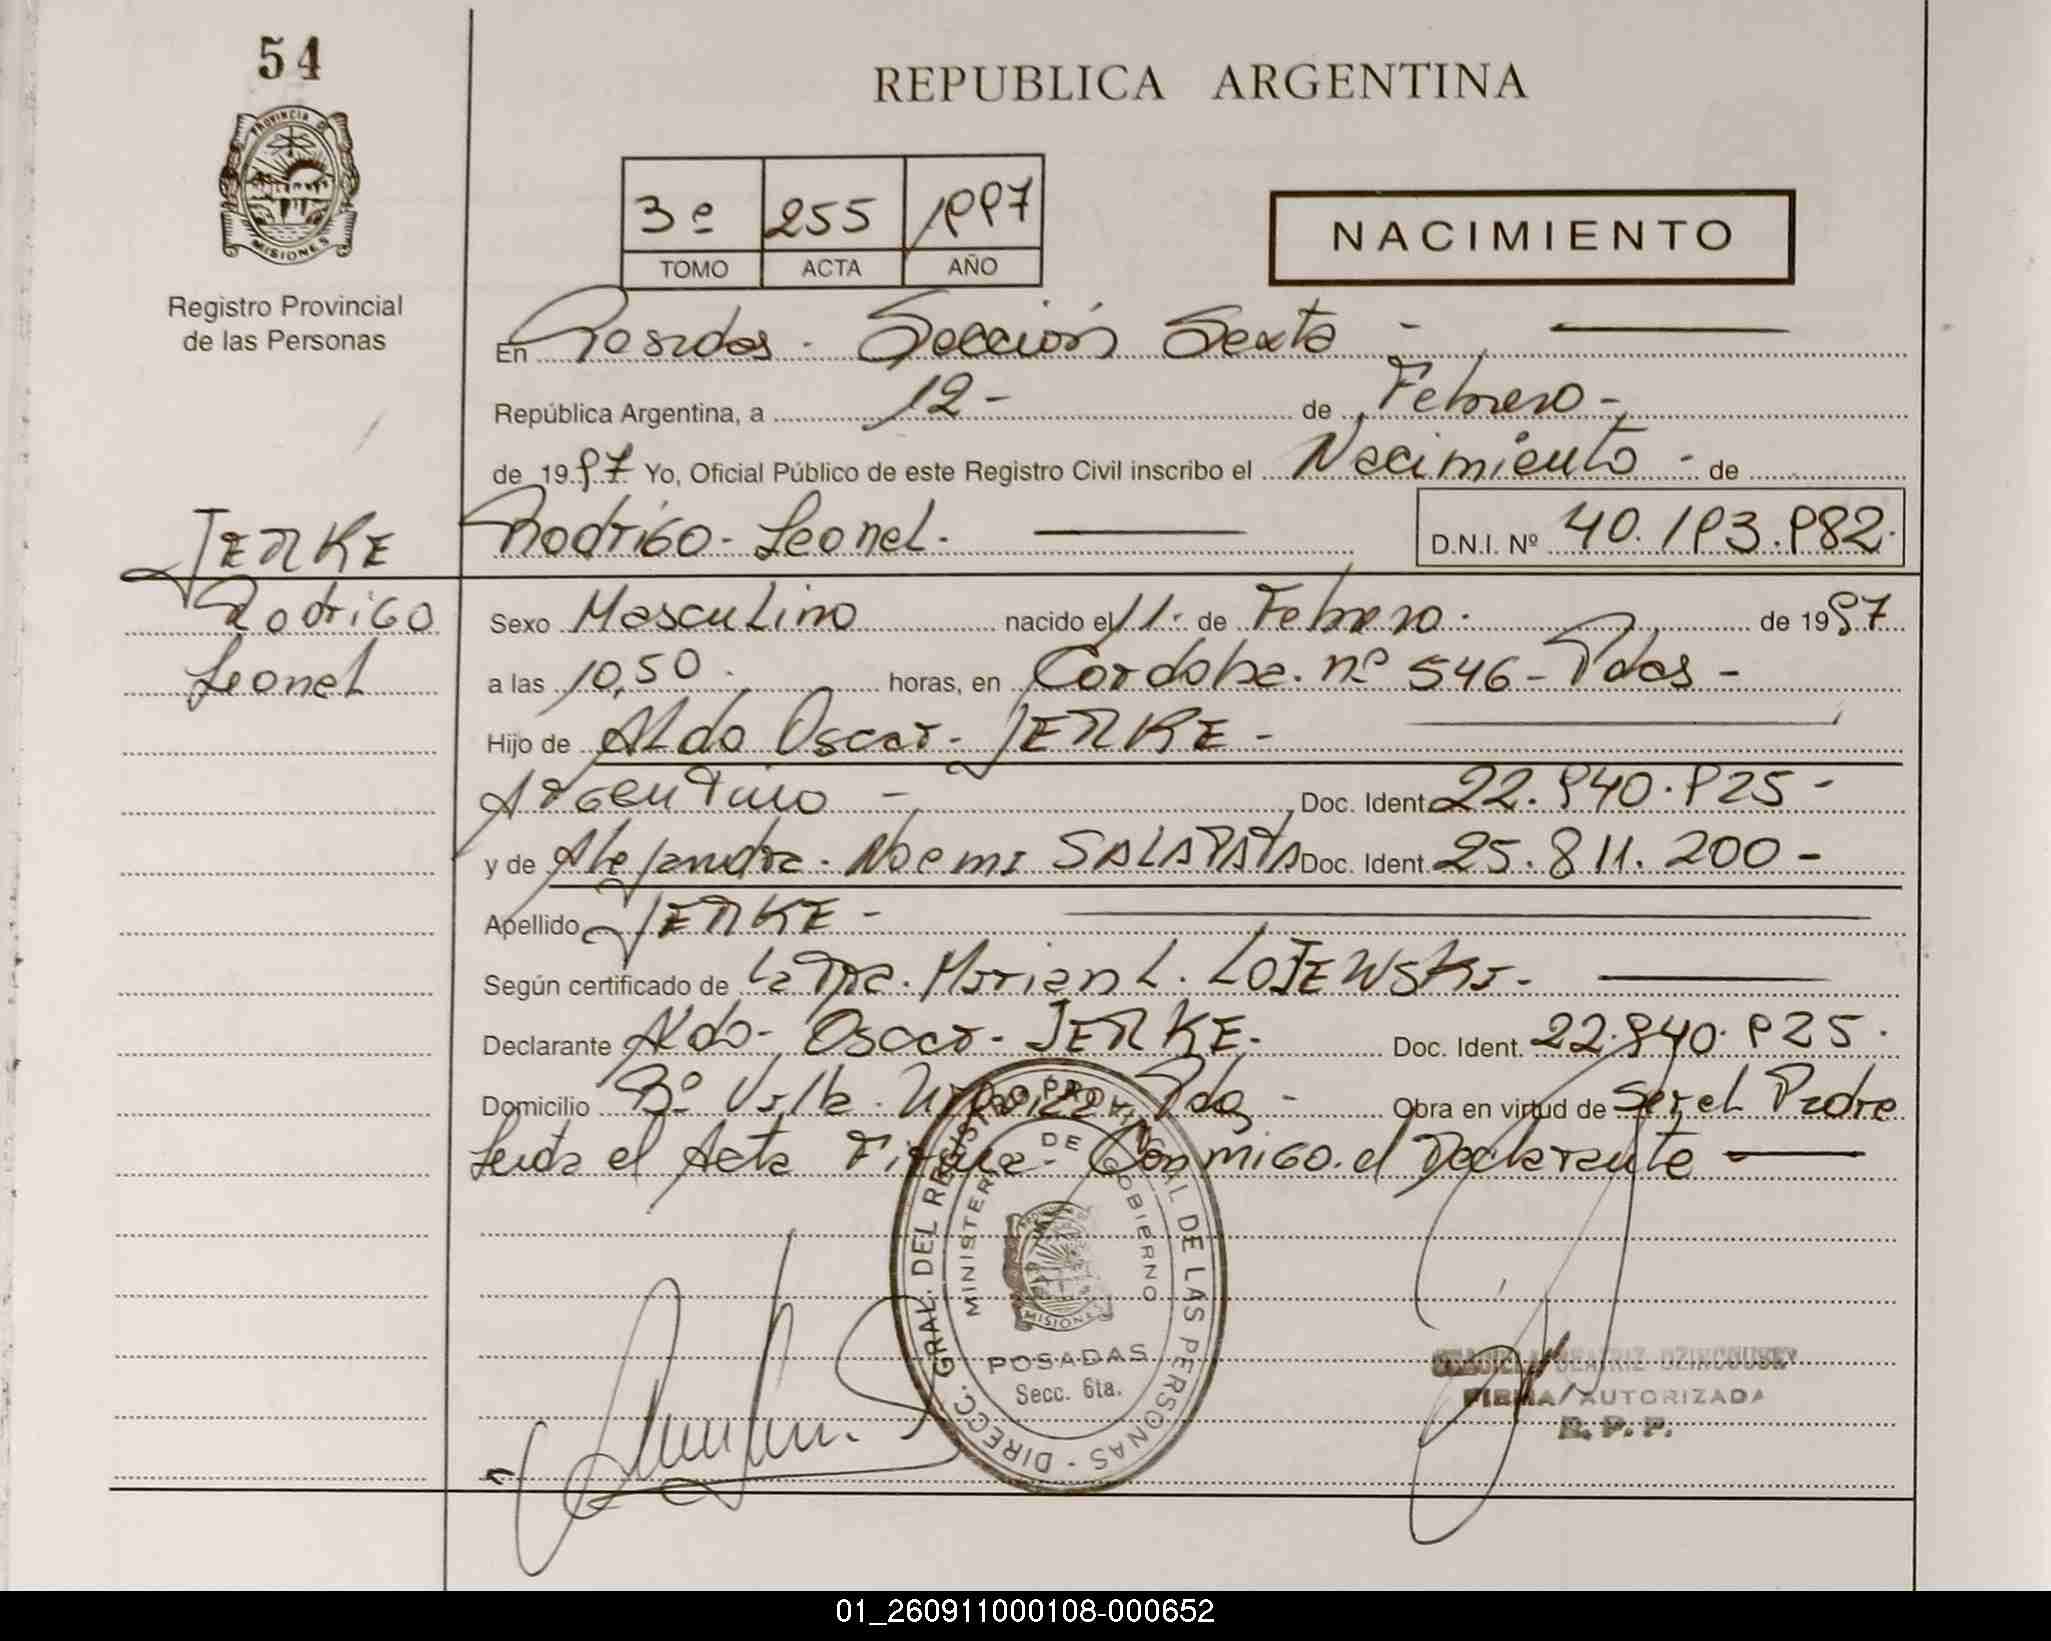 54
PROVINCIA DE
MISIONES
Registro Provincial
de las Personas
REPUBLICA ARGENTINA
3º 255 1997
TOMO ACTA AÑO
NACIMIENTO
En Posadas - Sección Sexta -
República Argentina, a 12 - de Febrero -
de 1997 Yo, Oficial Público de este Registro Civil inscribo el Nacimiento - de
JERKE Rodrigo - Leonel. D.N.I. Nº 40.193.982.
Rodrigo
Leonel
Sexo Masculino nacido el 11. de Febrero. de 1997
a las 10,50. horas, en Cordoba. nº 546 - Pdas -
Hijo de Aldo Oscar - JERKE -
Argentino - Doc. Ident. 22.940.925 -
y de Alejandra - Noemi SALAPATA Doc. Ident. 25.811.200 -
Apellido JERKE -
Según certificado de la Dra. Mirian L. LOJEWSKI -
Declarante Aldo - Oscar - JERKE - Doc. Ident. 22.940.925.
Domicilio Bº Villa Pdas - Obra en virtud de ser el Padre
Leida el Acta Firma - Conmigo. el Declarante
DIRECC. GRAL. DEL REGISTRO PROVINCIAL DE LAS PERSONAS -
MINISTERIO DE GOBIERNO
MISIONES
POSADAS
Secc. 6ta.
BEATRIZ
FIRMA AUTORIZADA
R. P. P.
01_260911000108-000652